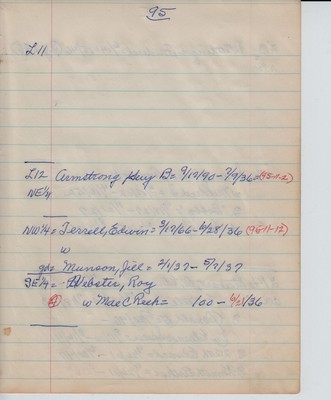 95
L11
L12 Armstrong Guy B= 9/19/90 - 7/7/36=(95-1-2)
NE¼
NW¼= Terrell, Edwin = 3/17/66 - 6/28/36 (95-11-12)
w
Munson, Jill = 2/4/37 - 5/7/37
SE¼= Webster, Roy
w Mae C Rech= 100 - /36